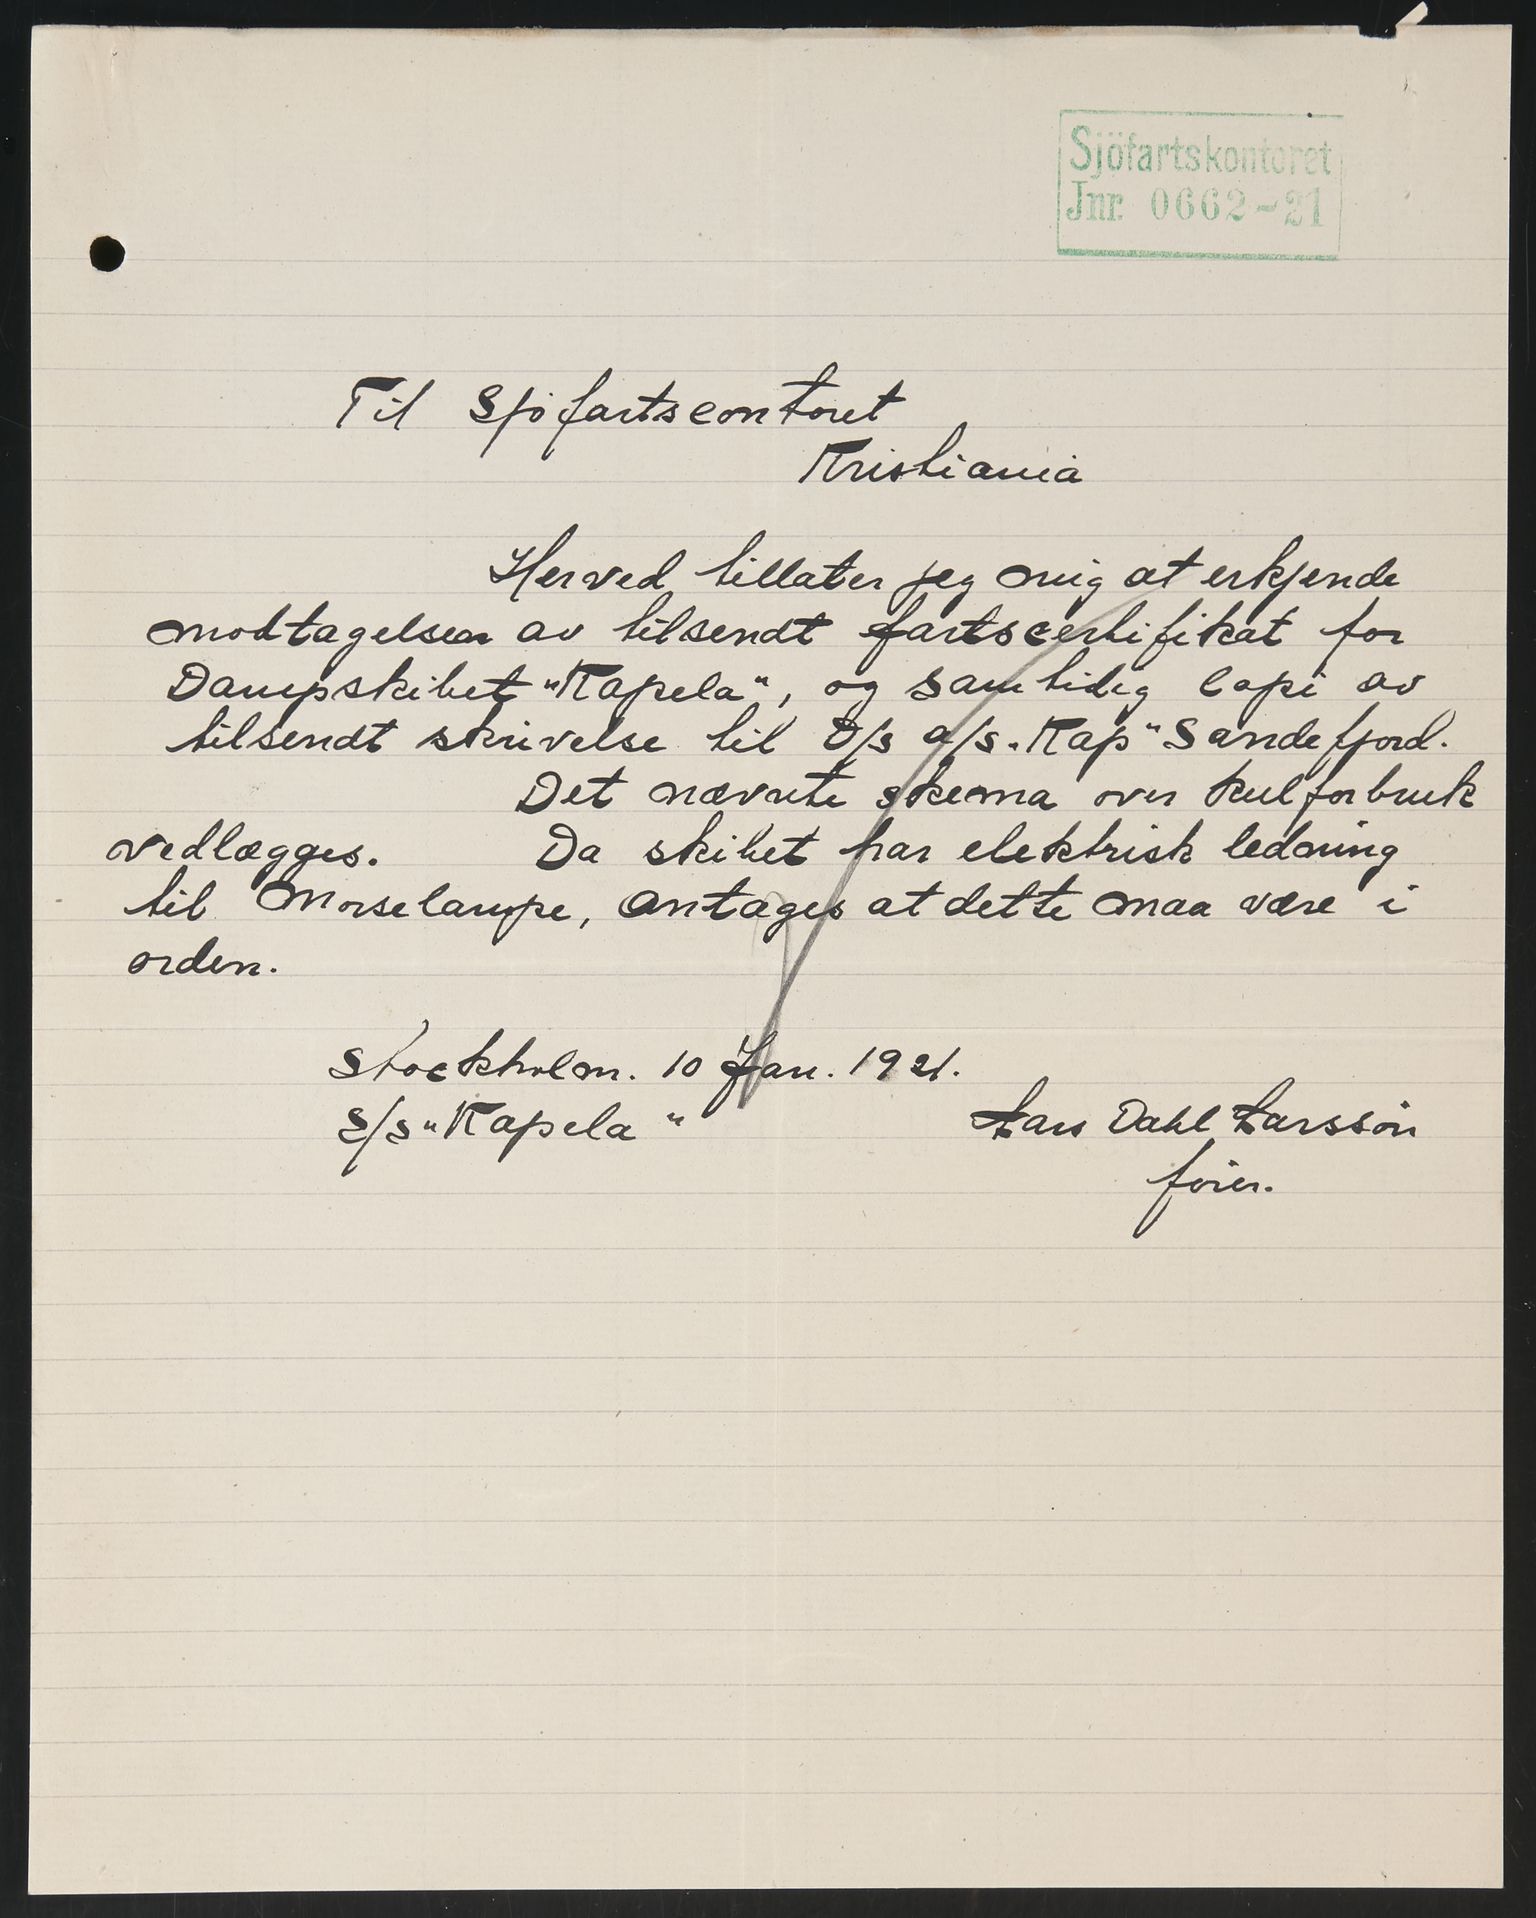 Sjöfartskontoret
Jnr. 0662-21
Til Sjöfartscontoret
Kristiania
Herved tillater jeg mig at erkjende
modtagelsen av tilsendt fartscertifikat for
Dampskibet "Kapela", og samtidig copi av
tilsendt skrivelse til D/s a/s. Kap" Sandefjord.
Det nævnte skema over kulforbruk
vedlægges. Da skibet har elektrisk ledning
til Morselampe, antages at dette maa være i
orden.
Stockholm. 10 Jan. 1921.
S/S "Kapela"
Lars Dahl Larssön
förer.